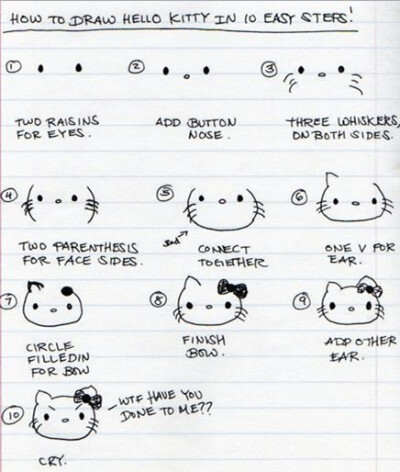 HOW TO DRAW HELLO KITTY IN 10 EASY STEPS!
1
TWO RAISINS
FOR EYES.
2
ADD BUTTON
NOSE.
3
THREE WHISKERS,
ON BOTH SIDES.
4
TWO PARENTHESIS
FOR FACE SIDES.
5
CONNECT
TOGETHER
6
ONE V FOR
EAR.
7
CIRCLE
FILLEDIN
FOR BOW
8
FINISH
BOW.
9
ADD OTHER
EAR.
10
WTF HAVE YOU
DONE TO ME??
CRY.